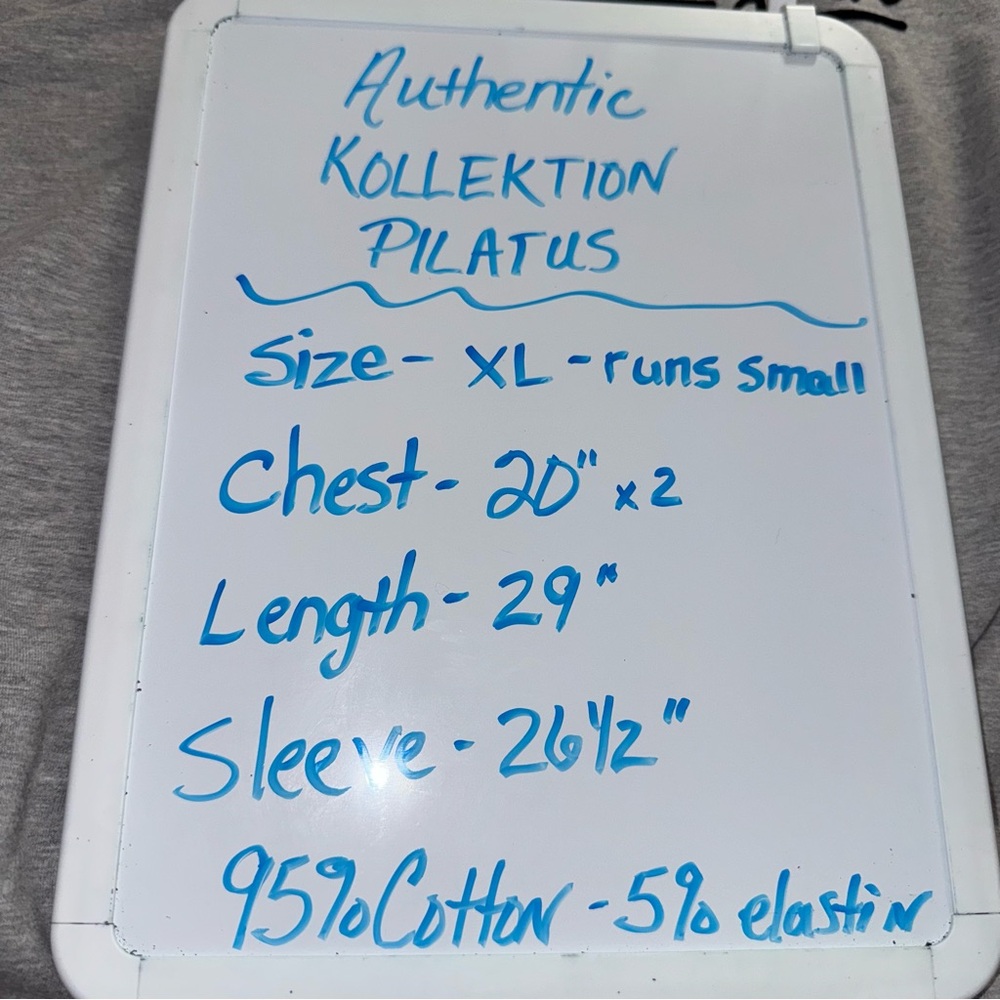 Authentic
KOLLEKTION
PILATUS
Size - XL - runs small
Chest - 20" x 2
Length - 29"
Sleeve - 26 1/2"
95% Cotton - 5% elastin